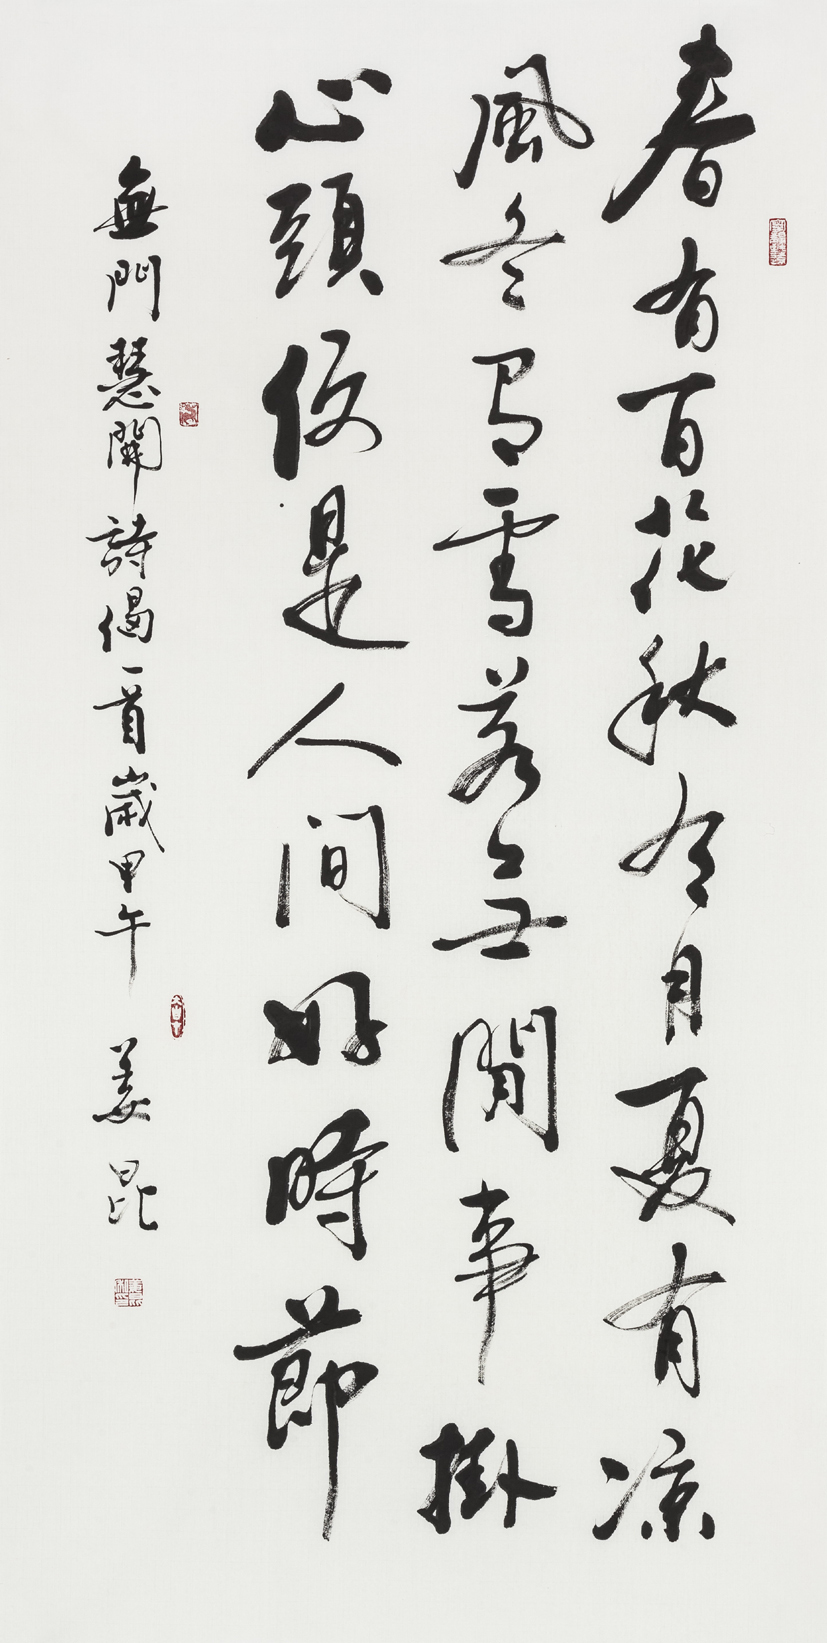 春有百花秋有月夏有凉
風冬有雪若無閒事掛
心頭便是人间好時節
無門慧開詩偈一首歲甲午 姜昆